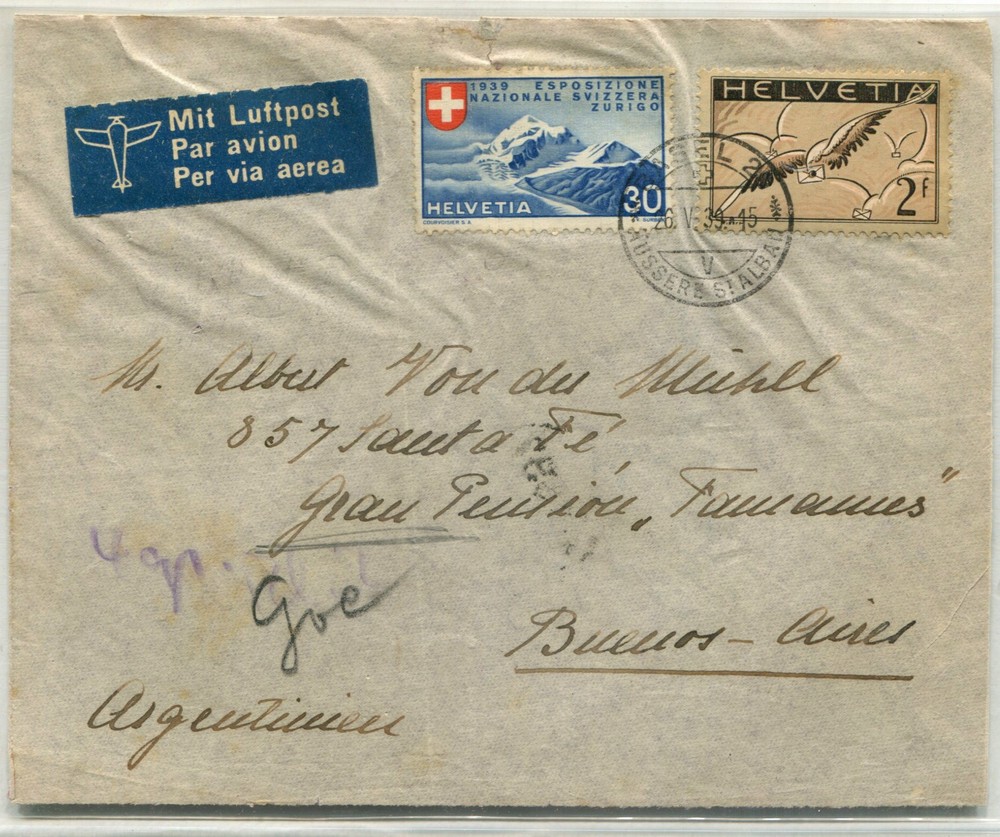 Mit Luftpost
Par avion
Per via aerea
1939 ESPOSIZIONE
NAZIONALE SVIZZERA
ZURIGO
HELVETIA
30
COURVOISIER S.A.
HELVETIA
2F
BASEL 2
26.V.39.-15
V
ÄUSSERE ST ALBAN
Mr. Albert Von der Mühll
857 Santa Fé,
Gran Pensión „Tamames"
4 gr.
Goe
Buenos-Aires
Argentinien